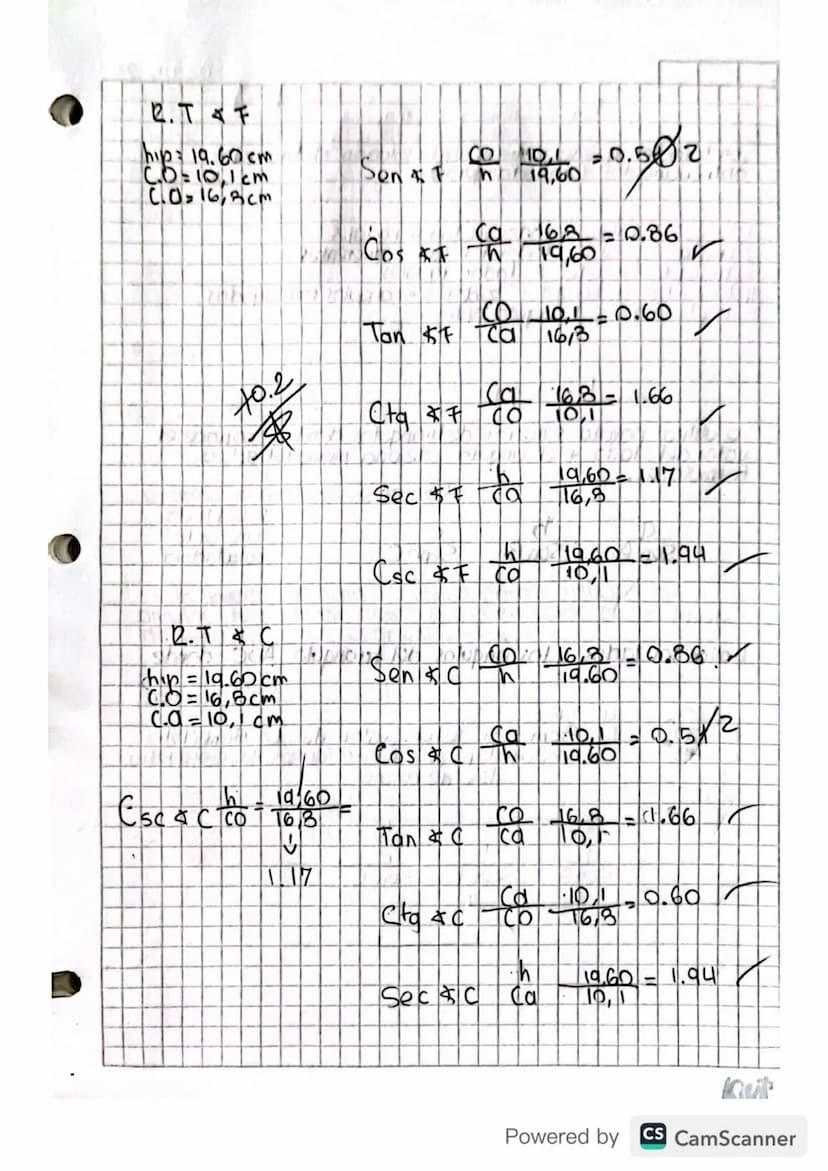 R.T ∢ F
hip = 19.60 cm
C.O = 10,1 cm
C.a = 16,8 cm
Sen ∢ F co/h 10,1/19,60 = 0.502
Cos ∢ F ca/h 16,8/19,60 = 0.86
Tan ∢ F co/ca 10,1/16,8 = 0.60
+0.2
Ctg ∢ F ca/co 16,8/10,1 = 1.66
Sec ∢ F h/ca 19,60/16,8 = 1.17
Csc ∢ F h/co 19,60/10,1 = 1.94
R.T ∢ C
hip = 19.60 cm
C.O = 16,8 cm
C.a = 10,1 cm
Sen ∢ C co/h 16,8/19.60 = 0.86
Cos ∢ C ca/h 10,1/19.60 = 0.512
Csc ∢ C h/co = 19,60/16,8 =
1.17
Tan ∢ C co/ca 16,8/10,1 = 1.66
Ctg ∢ C ca/co 10,1/16,8 = 0.60
Sec ∢ C h/ca 19,60/10,1 = 1.94
Powered by CS CamScanner